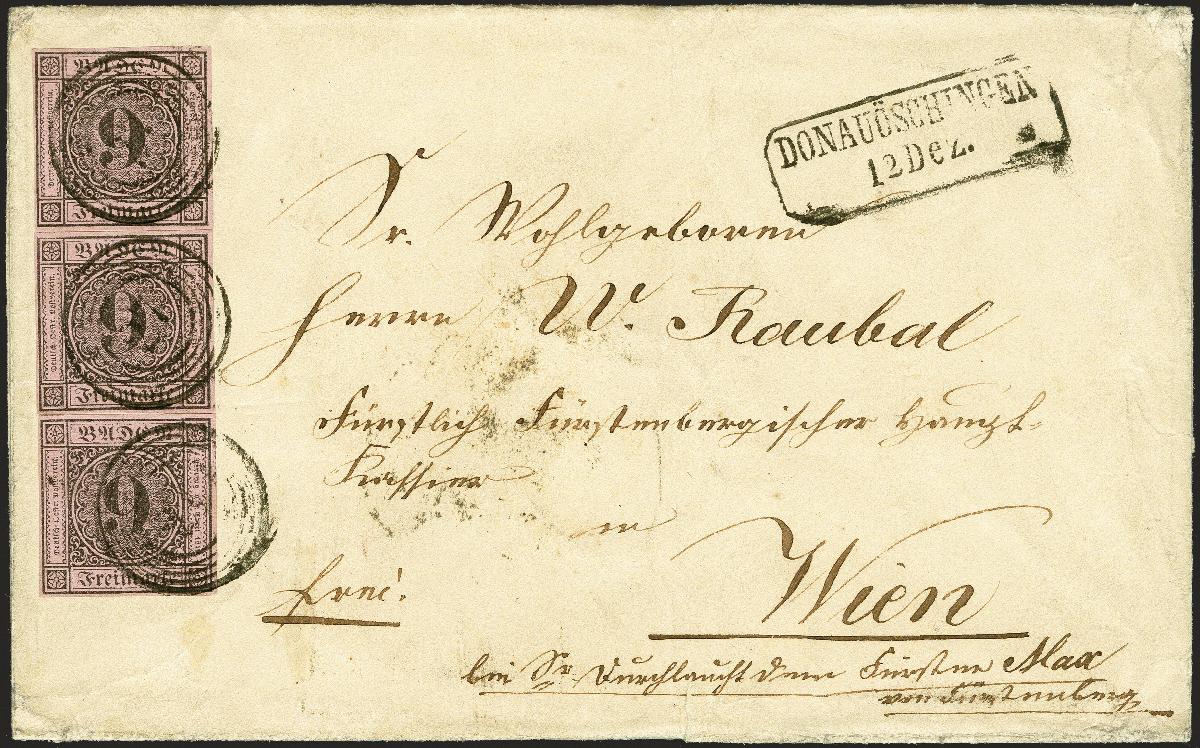 BADEN
9
Freimarke
BADEN
9
Freimarke
BADEN
9
Freimarke
DONAUÖSCHINGEN
12 Dez.
Sr. Wohlgeboren
Herrn W. Raubal
Fürstlich Fürstenbergischer Haupt-
Kassier
in
Wien
frei.
bei Sr Durchlaucht dem Fürsten Max
von Fürstenberg